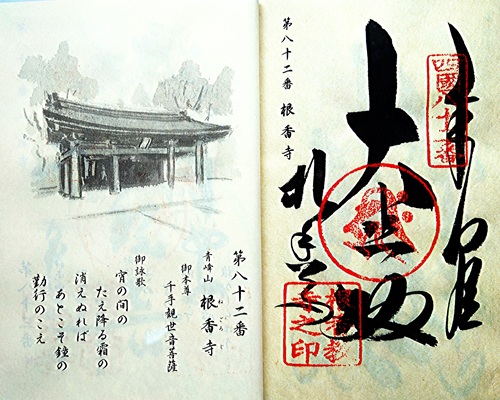 第八十二番 根香寺
四國八十二番
奉納
大悲殿
根香寺
根香寺之印
第八十二番
青峰山 根香寺
ねごろじ
御本尊
千手観世音菩薩
御詠歌
宵の間の
たえ降る霜の
消えぬれば
あとこそ鐘の
勤行のこえ